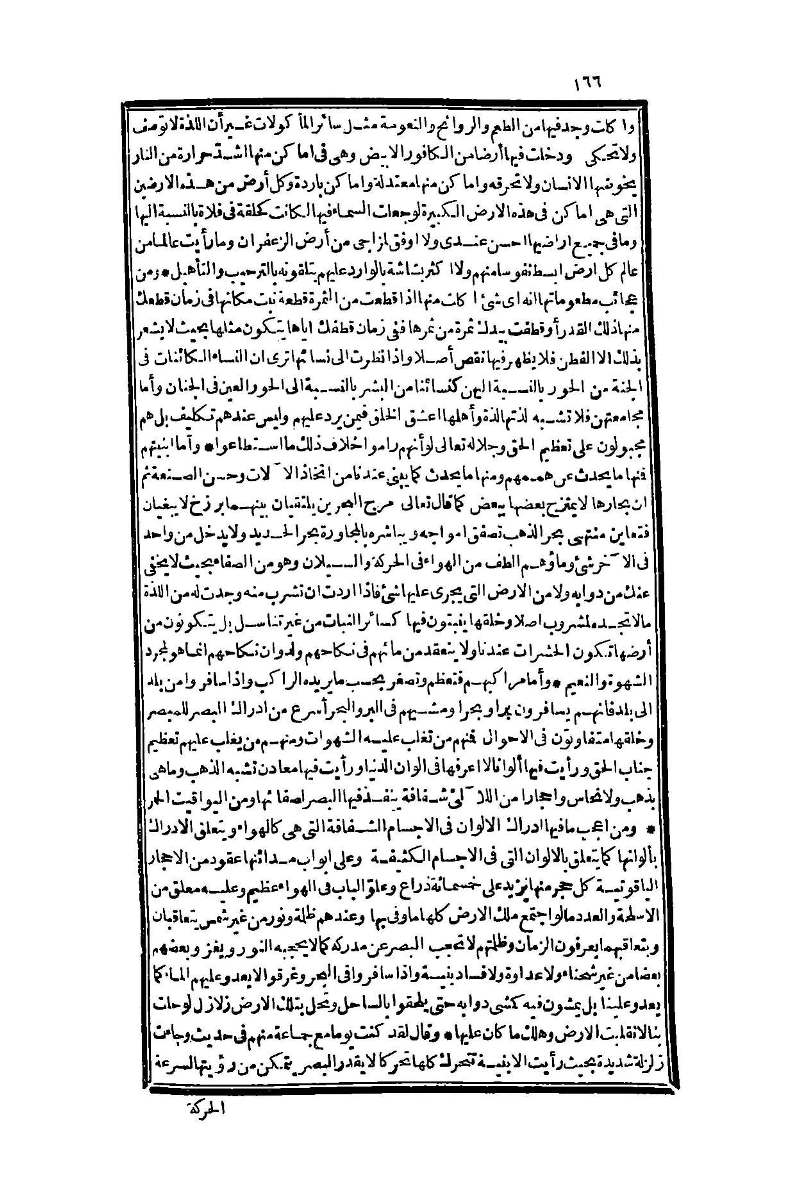 ١٦٦
وا كات وجد فيها من الطعم والروائح والنعومة مثل سائر المأكولات غير أن اللذة لا توصف
ولا تحكى ودخلت فيها أرضا من الكافور الابيض وهى فى اماكن منها اشد حرارة من النار
يخوضها الانسان ولا تحرقه واماكن منها معتدلة واماكن باردة وكل أرض من هذه الارضين
التى هى اماكن فى هذه الارض الكبيرة لو جعلت السماء فيها لكانت كحلقة فى فلاة بالنسبة اليها
وما فى جميع اراضيها احسن عندى ولا اوفق لمزاجى من أرض الزعفران وما رأيت عالما من
عالم كل ارض ابسط نفوسا منهم ولا اكثر بشاشة بالوارد عليهم يتلقونه بالترحيب والتأهيل * ومن
عجائب مطعوماتها انه اى شئ اكلت منها اذا قطعت من الثمرة قطعة نبت مكانها فى زمان قطعك
منها ذلك القدر أو قطفت بيدك ثمرة من ثمرها ففى زمان قطفك اياها يتكون مثلها بحيث لا يشعر
بذلك الا الفطن فلا يظهر فيها نقص أصلا واذا نظرت الى نسائها ترى ان النساء الكائنات فى
الجنة من الحور بالنسبة اليهن كنسائنا من البشر بالنسبة الى الحور العين فى الجنان وأما
مجامعتهن فلا تشبه لذتها لذة وأهلها اعشق الخلق فيمن يرد عليهم وليس عندهم تكليف بل هم
مجبولون على تعظيم الحق وجلاله تعالى لو أنهم راموا خلاف ذلك ما استطاعوا * وأما ابنيتهم
فمنها ما يحدث عن هممهم ومنها ما يحدث كما يبنى عندنا من اتخاذ الآلات وحسن الصنعة ثم
ان بحارها لا يمتزج بعضها ببعض كما قال تعالى مرج البحرين يلتقيان بينهما برزخ لا يبغيان
فتعاين منتهى بحر الذهب تصفق امواجه ويباشره بالمجاورة بحر الحديد ولا يدخل من واحد
فى الآخر شئ وماؤهم الطف من الهواء فى الحركة والسيلان وهو من الصفاء بحيث لا يخفى
عنك من دوابه ولا من الارض التى يجرى عليها شئ فاذا اردت ان تشرب منه وجدت له من اللذة
مالا تجده لمشروب اصلا وخلقها ينبتون فيها كسائر النبات من غير تناسل بل يتكونون من
أرضها تكون الحشرات عندنا ولا ينعقد من مائهم فى نكاحهم ولد وان نكاحهم انما هو لمجرد
الشهوة والنعيم * وأما مراكبهم فتعظم وتصغر بحسب ما يريده الراكب واذا سافروا من بلد
الى بلد فانهم يسافرون برا وبحرا ومشيهم فى البر والبحر أسرع من ادراك البصر للمبصر
وخلقها متفاوتون فى الاحوال فمنهم من تغلب عليه الشهوات ومنهم من يغلب عليهم تعظيم
جناب الحق ورأيت فيها ألوانا لا اعرفها فى الوان الدنيا ورأيت فيها معادن تشبه الذهب وما هى
بذهب ولا نحاس واحجارا من اللآلئ شفافة ينفذ فيها البصر لصفائها ومن اليواقيت الحمر
* ومن اعجب ما فيها ادراك الالوان فى الاجسام الشفافة التى هى كالهواء ويتعلق الادراك
بألوانها كما يتعلق بالالوان التى فى الاجسام الكثيفة وعلى ابواب مدائنها عقود من الاحجار
الياقوتية كل حجر منها يزيد على خمسمائة ذراع وعلو الباب فى الهواء عظيم وعليه معلق من
الاسلحة والعدد ما لو اجتمع ملك الارض كلها ما وفى بها وعندهم ظلمة ونور من غير شمس يتعاقبان
وبتعاقبهما يعرفون الزمان وظلمتهم لا تحجب البصر عن مدركه كما لا يحجبه النور ويغزو بعضهم
بعضا من غير شحناء ولا عداوة ولا فساد بنية واذا سافروا فى البحر وغرقوا لا يعدو عليهم الماء كما
يعدو علينا بل يمشون فيه كمشى دوابه حتى يلحقوا بالساحل وتحل بتلك الارض زلازل لو حلت
بنا لانقلبت الارض وهلك ما كان عليها * وقال لقد كنت يوما مع جماعة منهم فى حديث وجاءت
زلزلة شديدة بحيث رأيت الابنية تتحرك كلها تحركا لا يقدر البصر يتمكن من رؤيتها لسرعة
الحركة